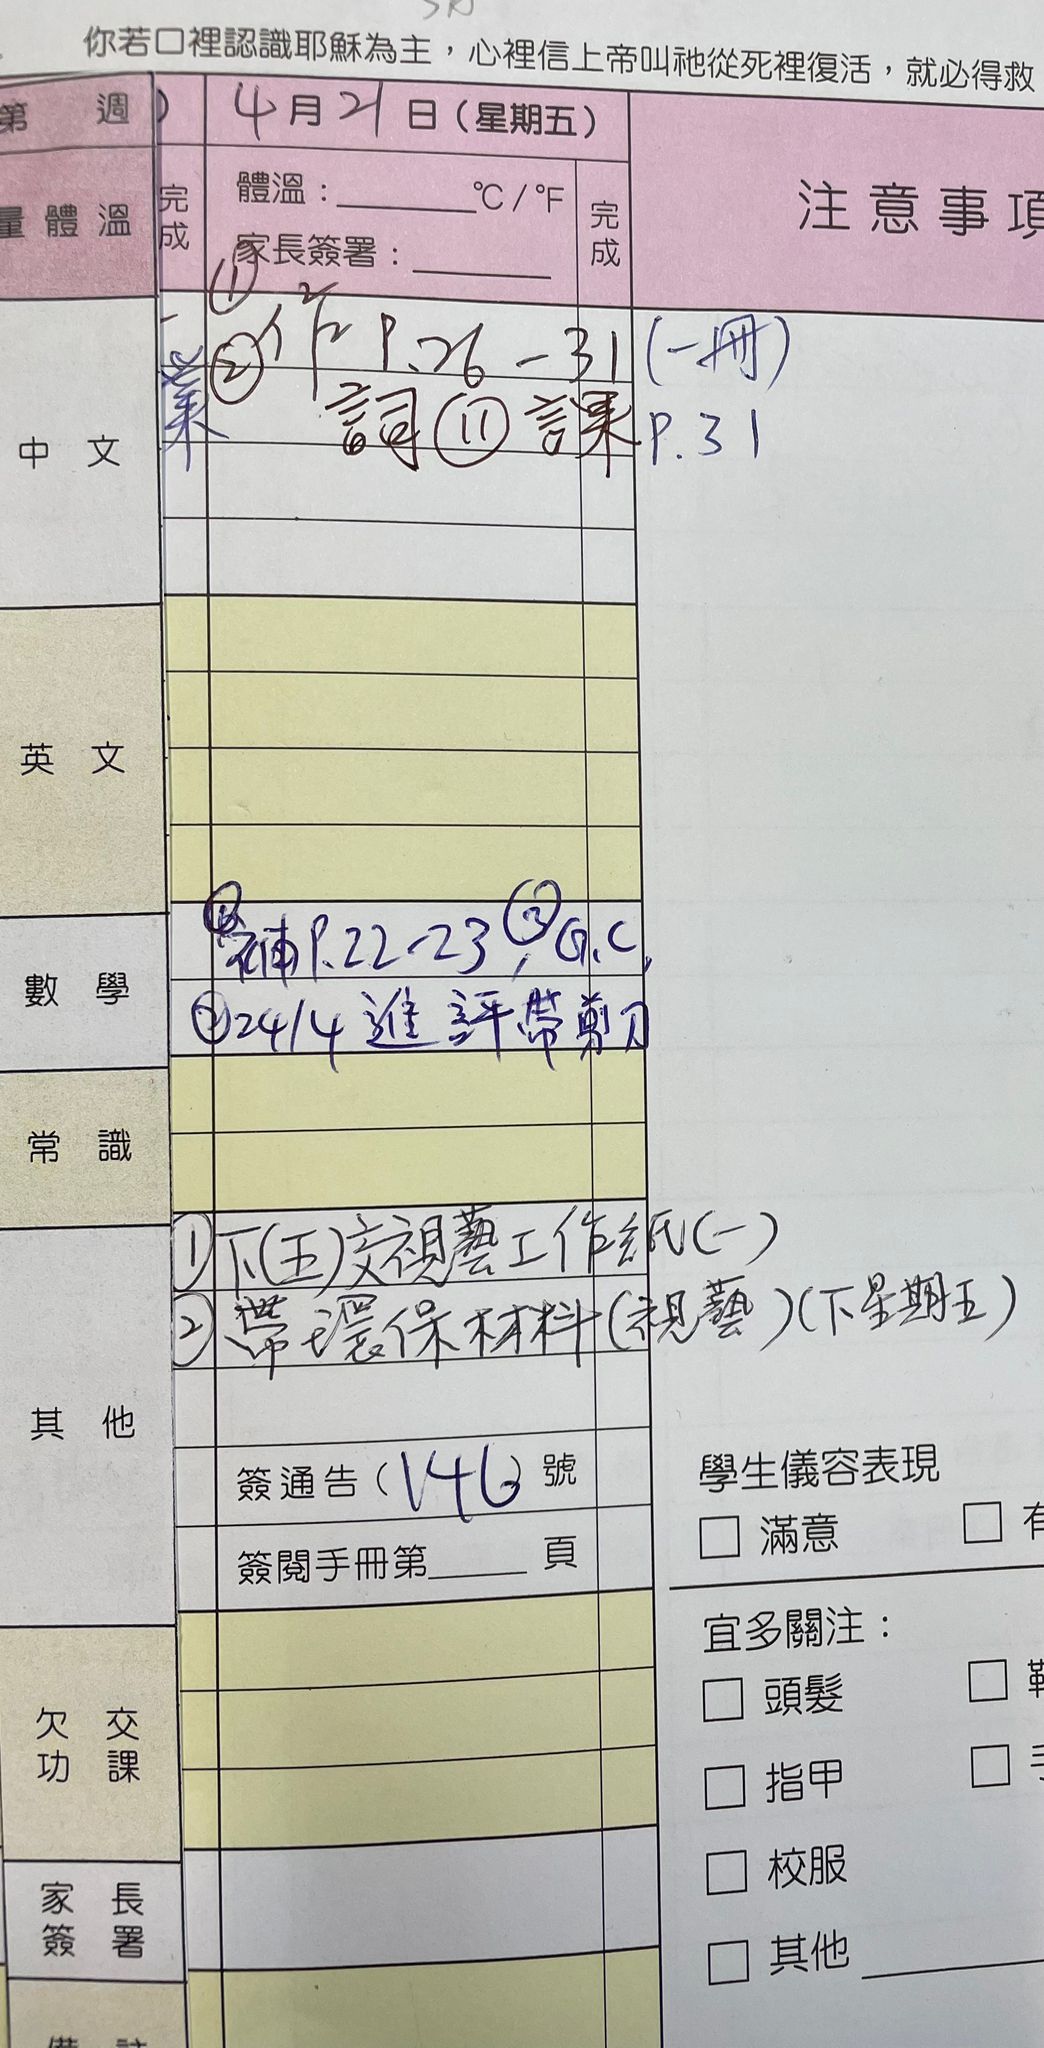 你若口裡認識耶穌為主，心裡信上帝叫祂從死裡復活，就必得救
第 週
4月21日（星期五）
量體溫
完成
體溫：______℃/℉
家長簽署：______
完成
注意事項
中文
業
① 作 P.26-31 (一冊)
② 詞⑪課 P.31
英文
數學
①補P.22-23, ③G.C.
②24/4 進評帶剪刀
常識
其他
①下(五)交視藝工作紙(一)
②帶環保材料(視藝)(下星期五)
簽通告（146）號
簽閱手冊第_____頁
學生儀容表現
□ 滿意 □ 有
宜多關注：
□ 頭髮 □
□ 指甲 □ 手
□ 校服
□ 其他
欠交功課
家長簽署
備註